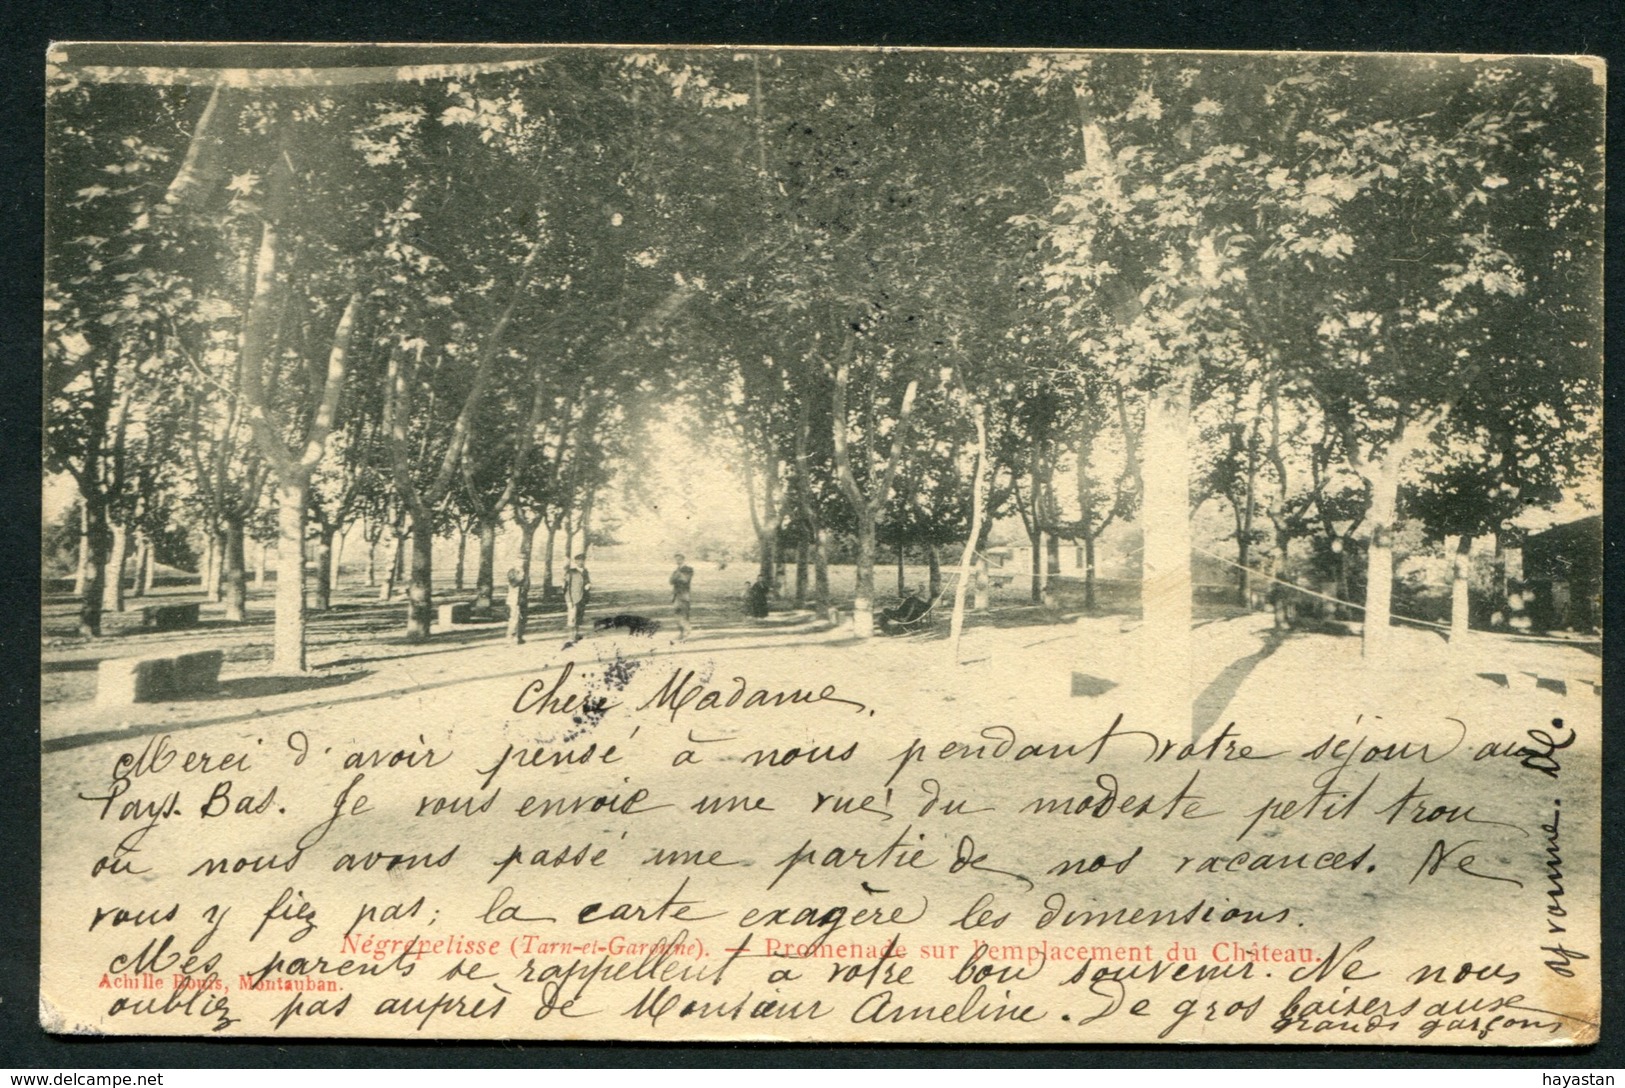 Chère Madame,
Merci d'avoir pensé à nous pendant votre séjour au
Pays-Bas. Je vous envoie une vue du modeste petit trou
où nous avons passé une partie de nos vacances. Ne
vous y fiez pas; la carte exagère les dimensions.
Négrepelisse (Tarn-et-Garonne). — Promenade sur l'emplacement du Château.
Mes parents se rappellent à votre bon souvenir. Ne nous
Achille Bouis, Montauban.
oubliez pas auprès de Monsieur Ameline. De gros baisers aux
grands garçons
Yvonne.
hayastan